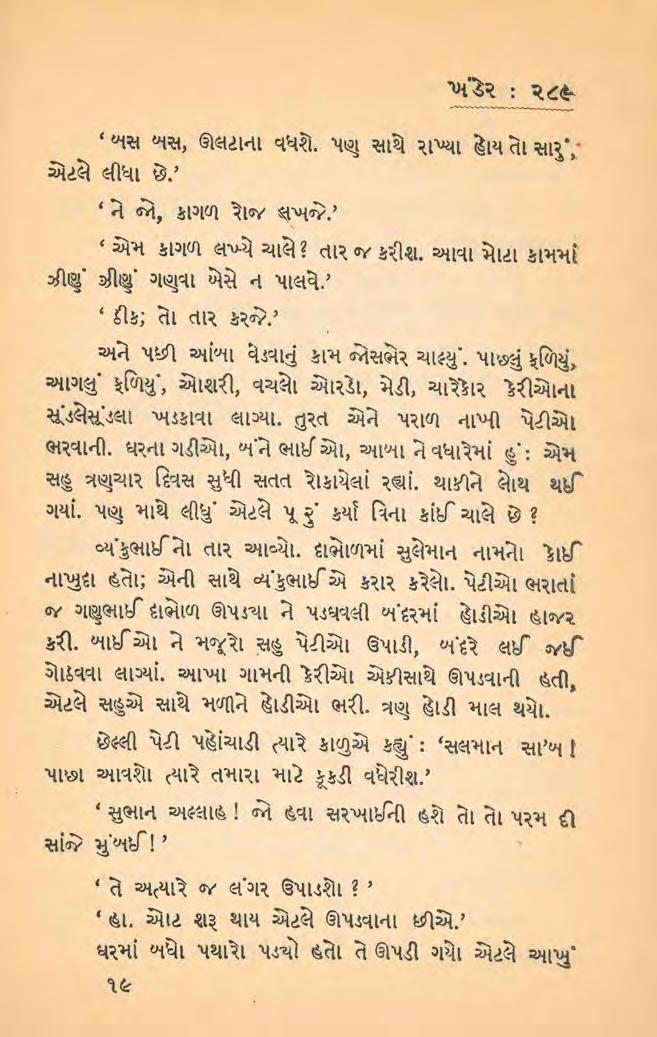 ખંડેર : ૨૮૯
‘ બસ બસ, ઊલટાના વધશે. પણ સાથે રાખ્યા હોય તો સારું,
એટલે લીધા છે.’
‘ ને જો, કાગળ રોજ લખજે.’
‘ એમ કાગળ લખ્યે ચાલે? તાર જ કરીશ. આવા મોટા કામમાં
ઝીણું ઝીણું ગણવા બેસે ન પાલવે.’
‘ ઠીક; તો તાર કરજે.’
અને પછી આંબા વેડવાનું કામ જોસભેર ચાલ્યું. પાછલું ફળિયું,
આગલું ફળિયું, ઓશરી, વચલો ઓરડો, મેડી, ચારેકાર કેરીઓના
સૂંડલેસૂંડલા ખડકાવા લાગ્યા. તુરત એને પરાળ નાખી પેટીઓ
ભરવાની. ઘરના ગડીઓ, બંને ભાઈઓ, આબા ને વધારેમાં હું : એમ
સહુ ત્રણચાર દિવસ સુધી સતત રોકાયેલાં રહ્યાં. થાકીને લોથ થઈ
ગયાં. પણ માથે લીધું એટલે પૂરું કર્યા વિના કાંઈ ચાલે છે ?
વ્યંકુભાઈનો તાર આવ્યો. દાભોળમાં સુલેમાન નામનો કોઈ
નાખુદા હતો; એની સાથે વ્યંકુભાઈએ કરાર કરેલો. પેટીઓ ભરાતાં
જ ગણુભાઈ દાભોળ ઊપડ્યા ને પડઘવલી બંદરમાં હોડીઓ હાજર
કરી. બાઈઓ ને મજૂરો સહુ પેટીઓ ઉપાડી, બંદરે લઈ જઈ
ગોઠવવા લાગ્યાં. આખા ગામની કેરીઓ એકીસાથે ઊપડવાની હતી,
એટલે સહુએ સાથે મળીને હોડીઓ ભરી. ત્રણ હોડી માલ થયો.
છેલ્લી પેટી પહોંચાડી ત્યારે કાળુએ કહ્યું : ‘સલમાન સા’બ !
પાછા આવશો ત્યારે તમારા માટે કૂકડી વધેરીશ.’
‘ સુભાન અલ્લાહ ! જો હવા સરખાઈની હશે તો તો પરમ દી
સાંજે મુંબઈ ! ’
‘ તે અત્યારે જ લંગર ઉપાડશો ? ’
‘ હા. ઓટ શરૂ થાય એટલે ઊપડવાના છીએ.’
ઘરમાં બધો પથારો પડ્યો હતો તે ઊપડી ગયો એટલે આખું
૧૯